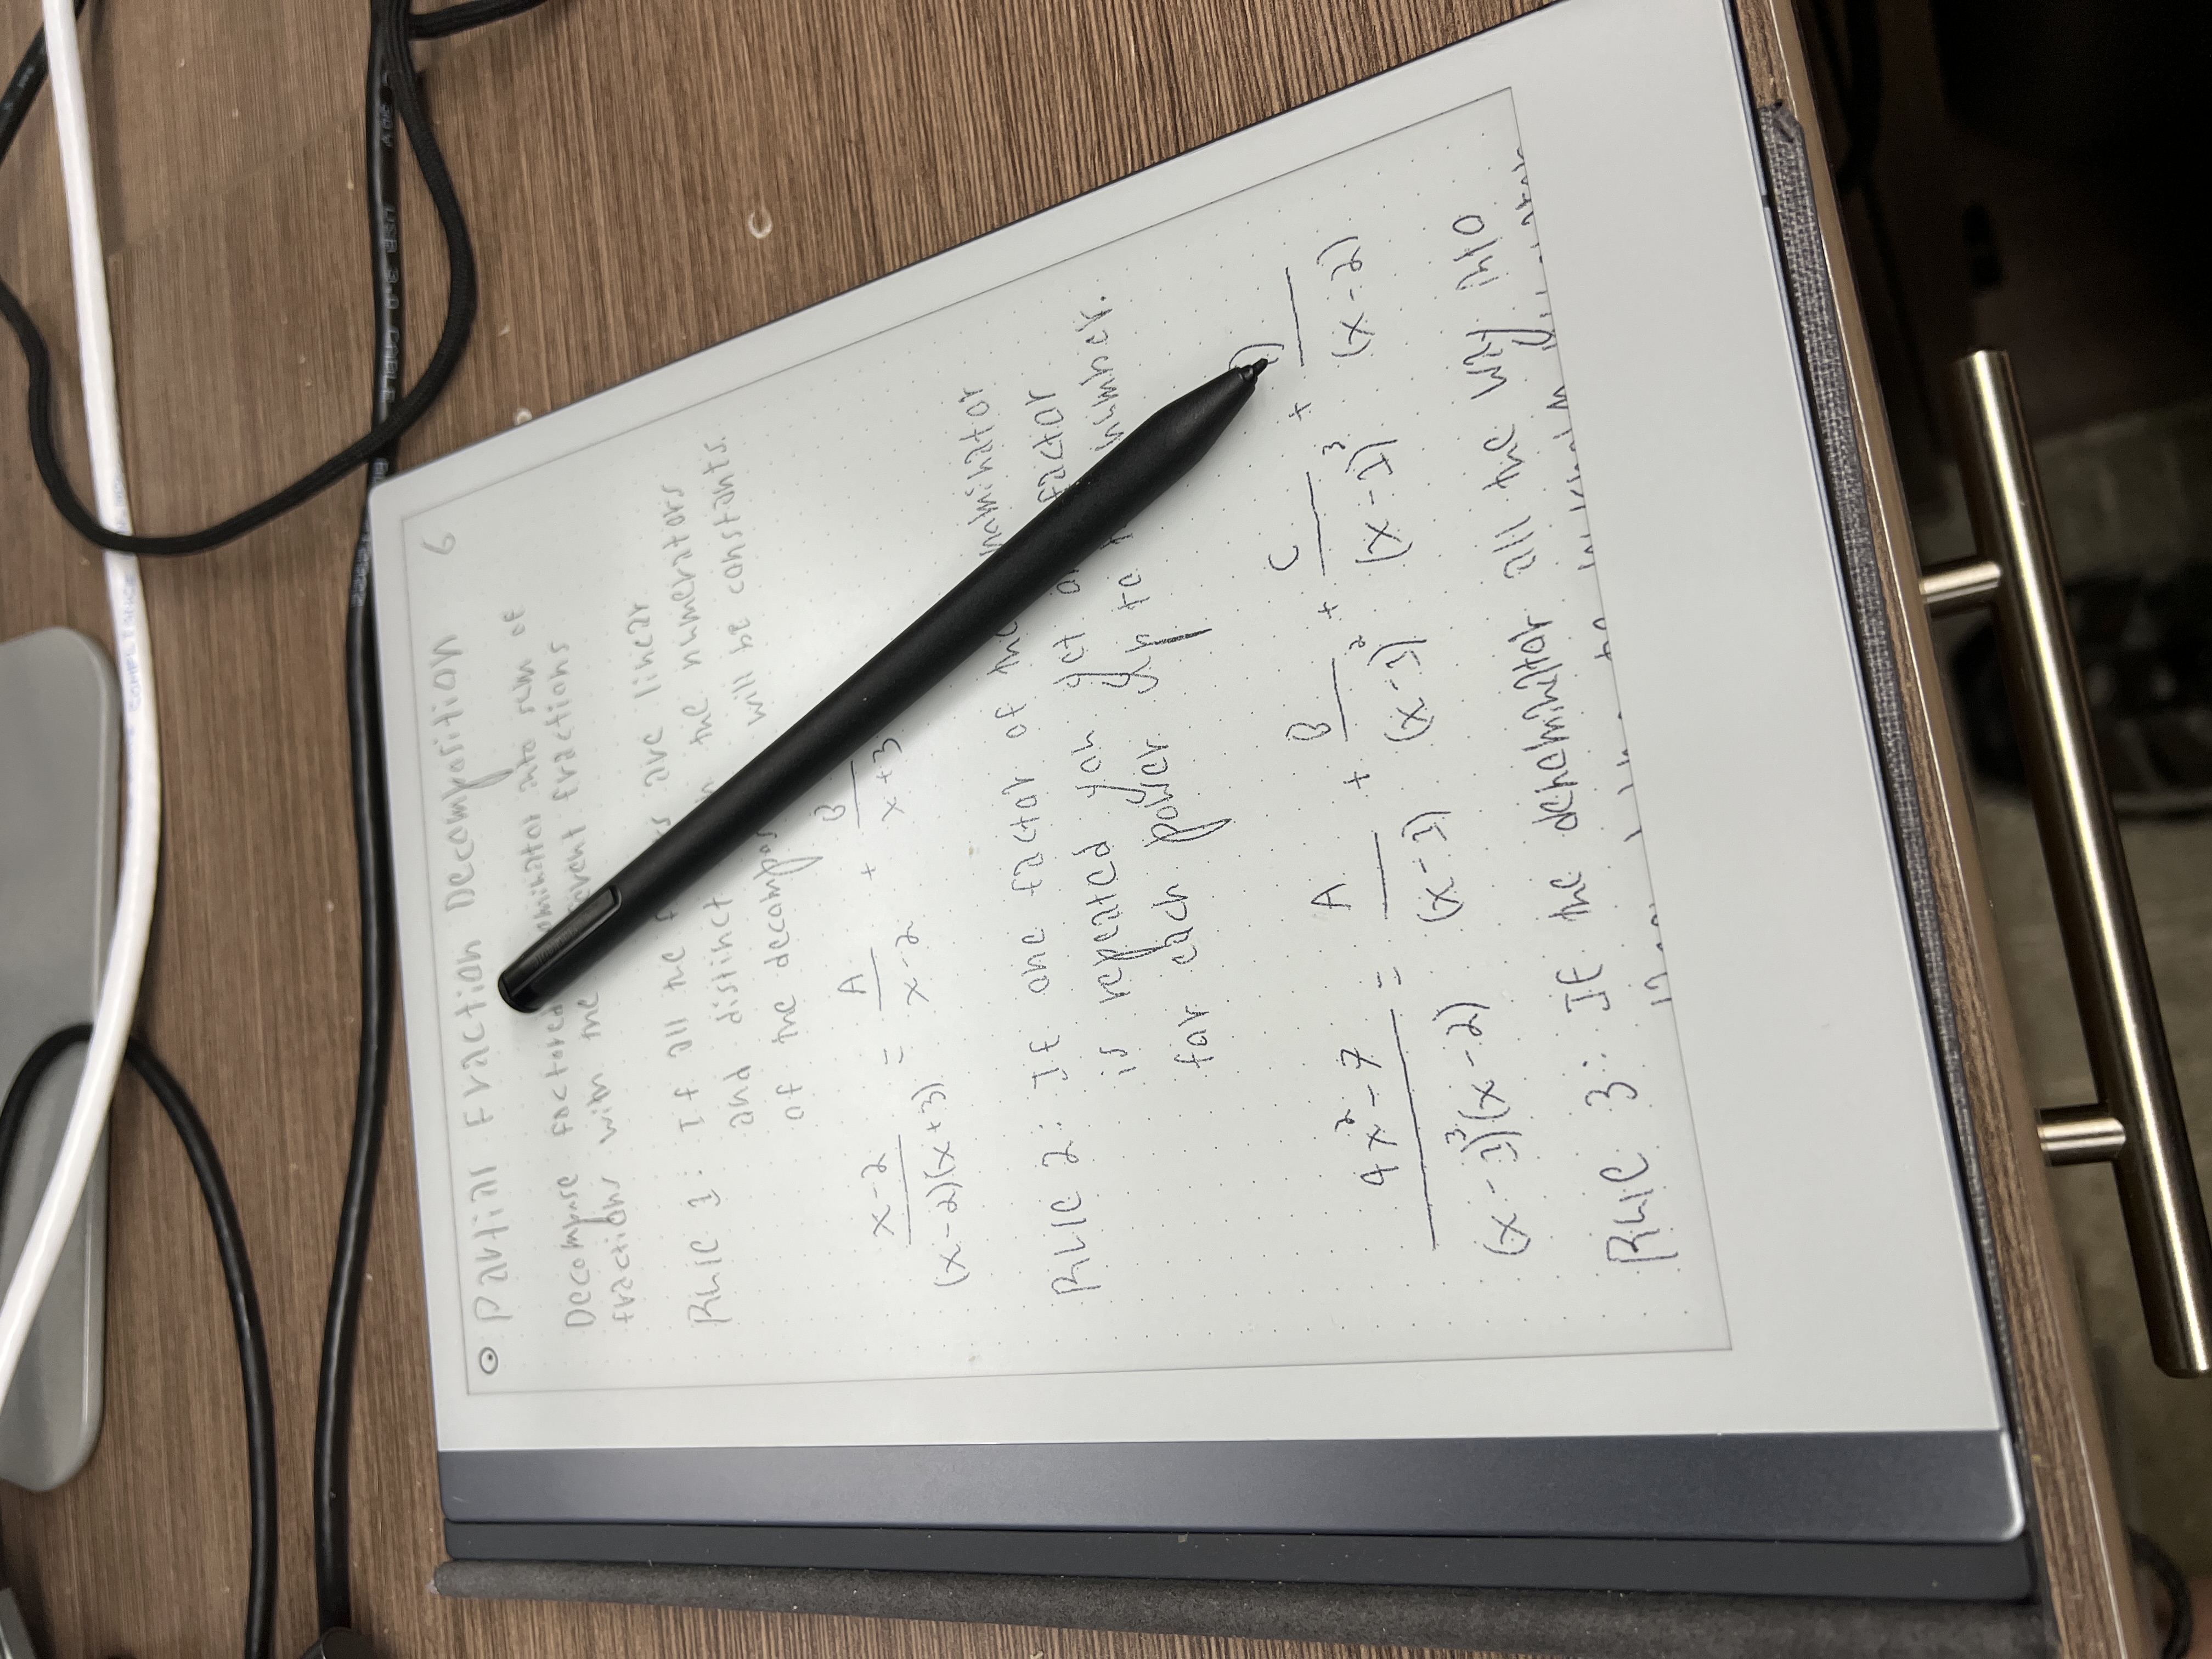 Partial Fraction Decomposition 6
Decompose factored into sum of
fractions with the fractions
Rule 1: If all the are linear
and distinct the numerators
of the decompos will be constants.
x-2 / (x-2)(x+3) = A / x-2 + B / x+3
Rule 2: If one factor of the
is repeated you get a factor
for each power up to number.
4x²-7 / (x-1)³(x-2) = A / (x-1) + B / (x-1)² + C / (x-1)³ + / (x-2)
Rule 3: If the denominator all the way into
USB 3.0 CABLE
30V